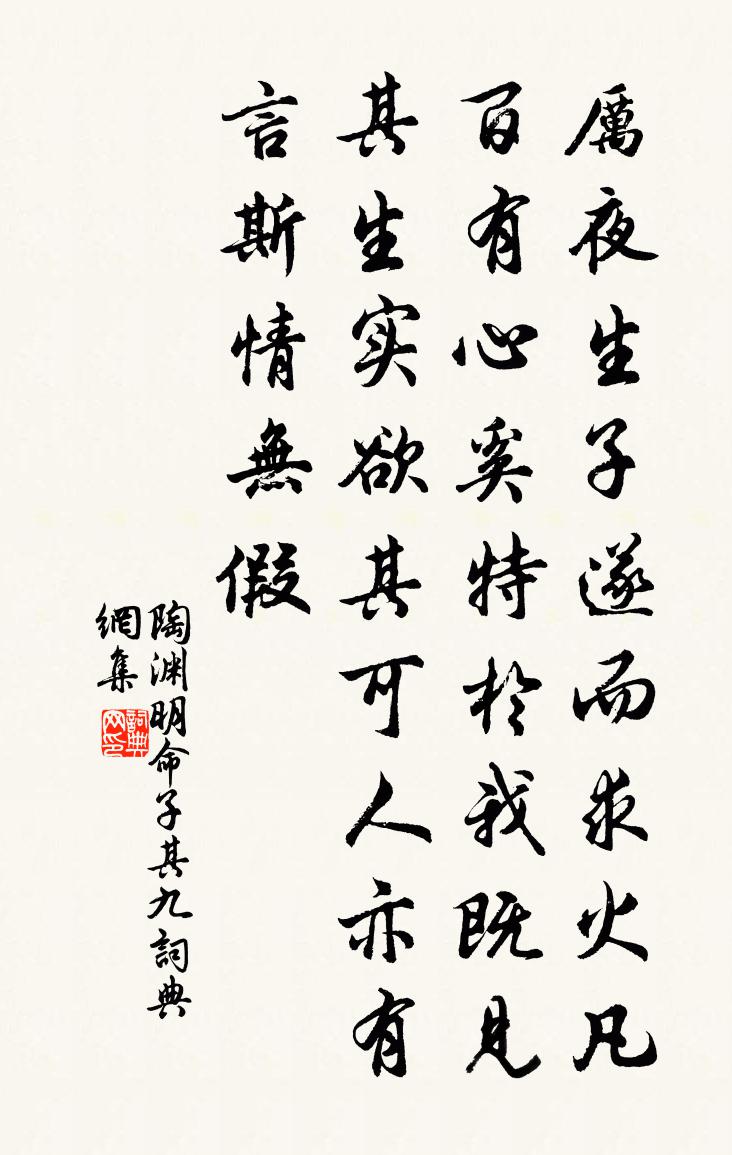 厲夜生子遂而求火凡
百有心奚特於我既見
其生实欲其可人亦有
言斯情無假
陶渊明命子其九詞典
網集
詞典
网印